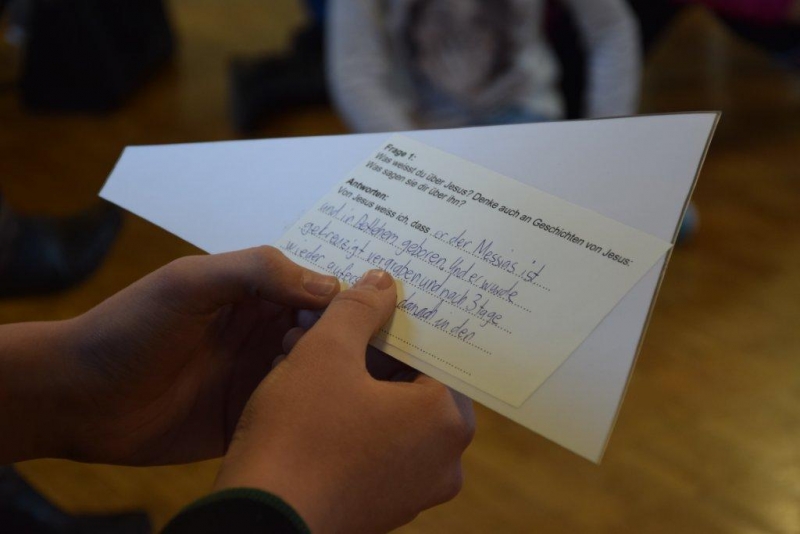 Frage 1:
Was weisst du über Jesus? Denke auch an Geschichten von Jesus:
Was sagen sie dir über ihn?
Antworten:
Von Jesus weiss ich, dass er der Messias ist
und in Betlehem geboren. Und er wurde
gekreuzigt vergraben und nach 3 tage
wieder aufers danach in den